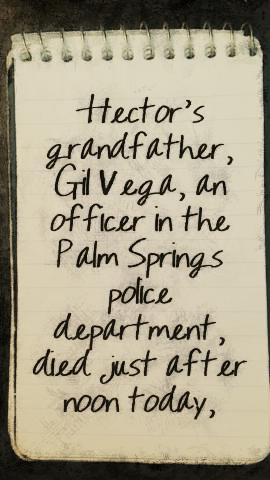 Hector's
grandfather,
Gil Vega, an
officer in the
Palm Springs
police
department,
died just after
noon today,